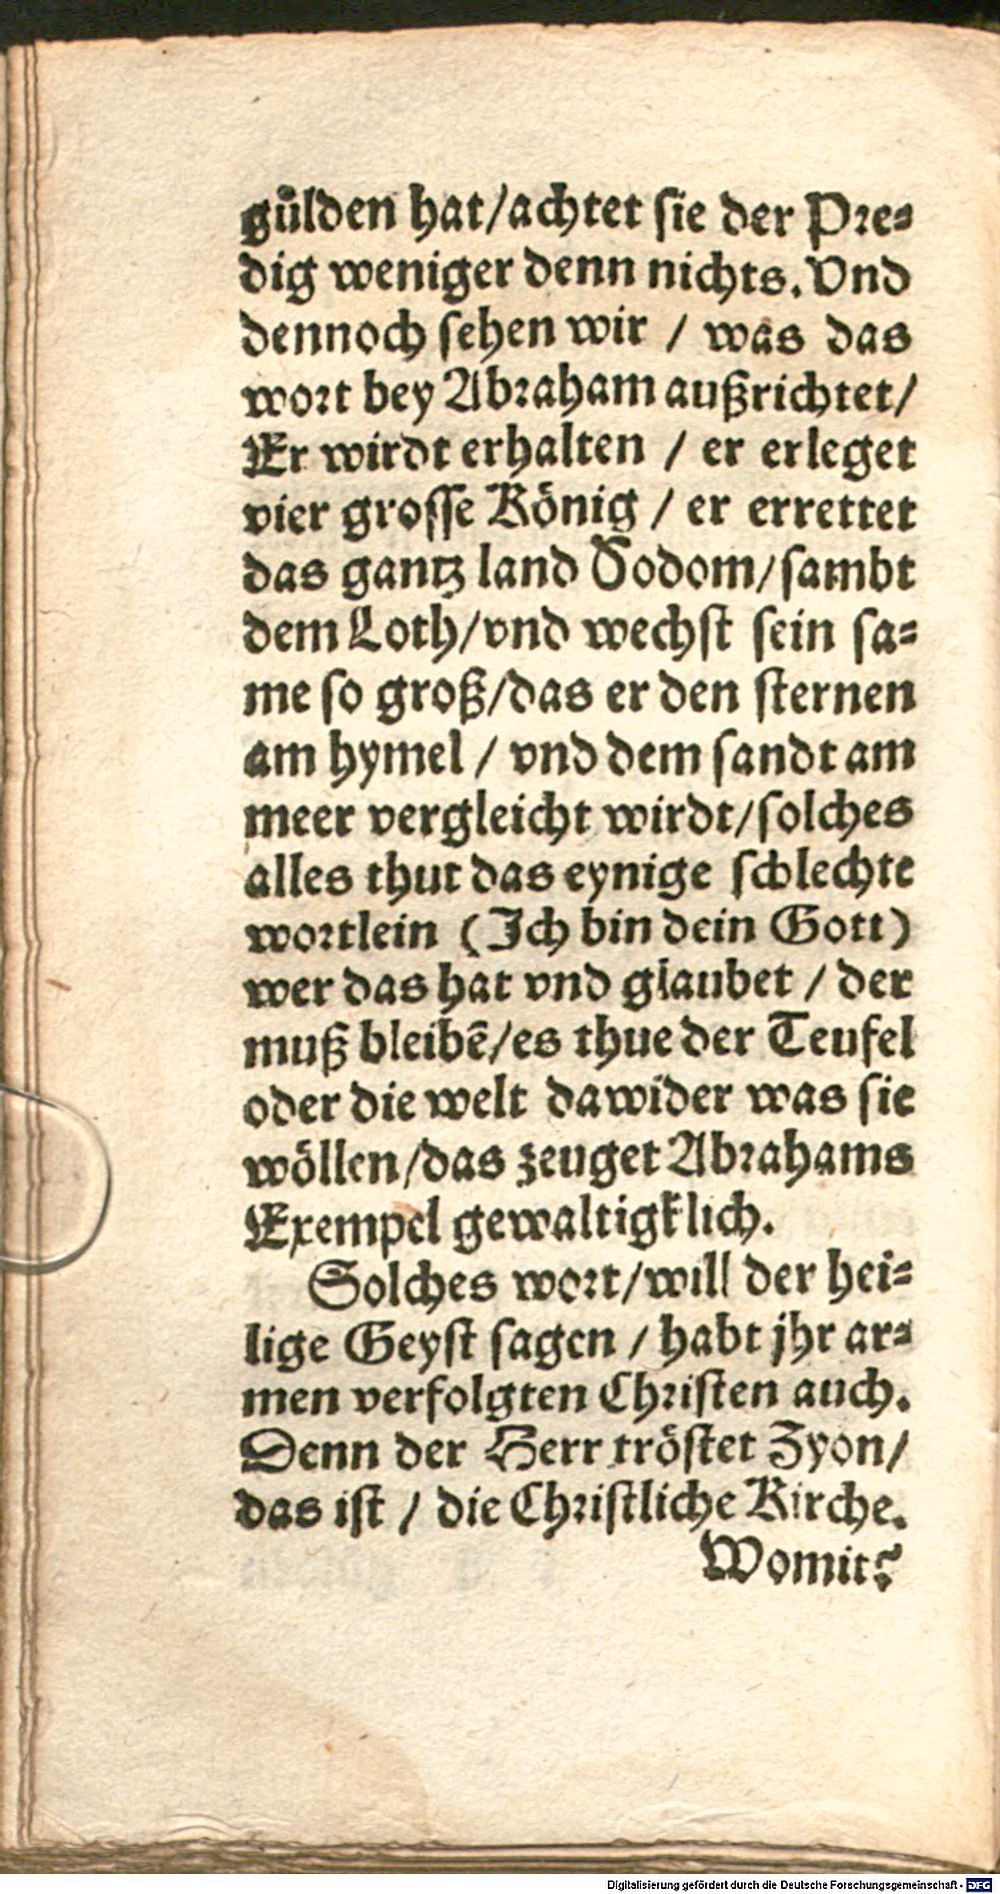 gůlden hat/achtet sie der Pre⸗
dig weniger denn nichts. Vnd
dennoch sehen wir / was das
wort bey Abraham außrichtet/
Er wirdt erhalten / er erleget
vier grosse König / er errettet
das gantz land Sodom/sambt
dem Loth/vnd wechst sein sa⸗
me so groß/das er den sternen
am hymel / vnd dem sandt am
meer vergleicht wirdt/solches
alles thut das eynige schlechte
wortlein (Ich bin dein Gott)
wer das hat vnd glaubet / der
muß bleibẽ/es thue der Teufel
oder die welt dawider was sie
wöllen/das zeuget Abrahams
Exempel gewaltigklich.
Solches wort/will der hei⸗
lige Geyst sagen / habt jhr ar⸗
men verfolgten Christen auch.
Denn der Herr tröstet Zyon/
das ist / die Christliche Kirche.
Womit?
Digitalisierung gefördert durch die Deutsche Forschungsgemeinschaft - DFG